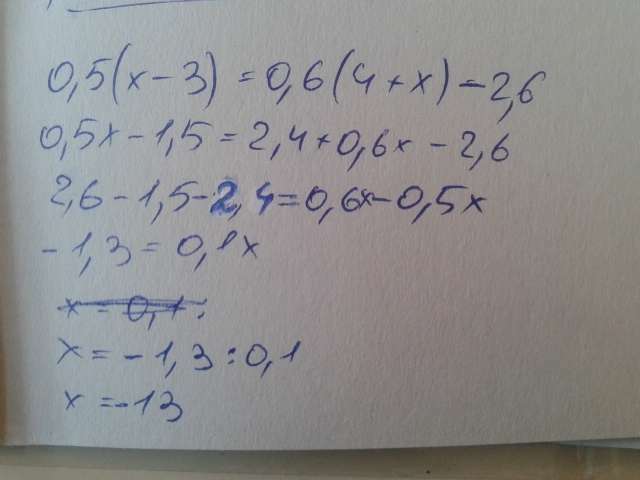 0,5(x-3)=0,6(4+x)-2,6
0,5x-1,5=2,4+0,6x-2,6
2,6-1,5-2,4=0,6x-0,5x
-1,3=0,1x
x=-1,3:0,1
x=-13